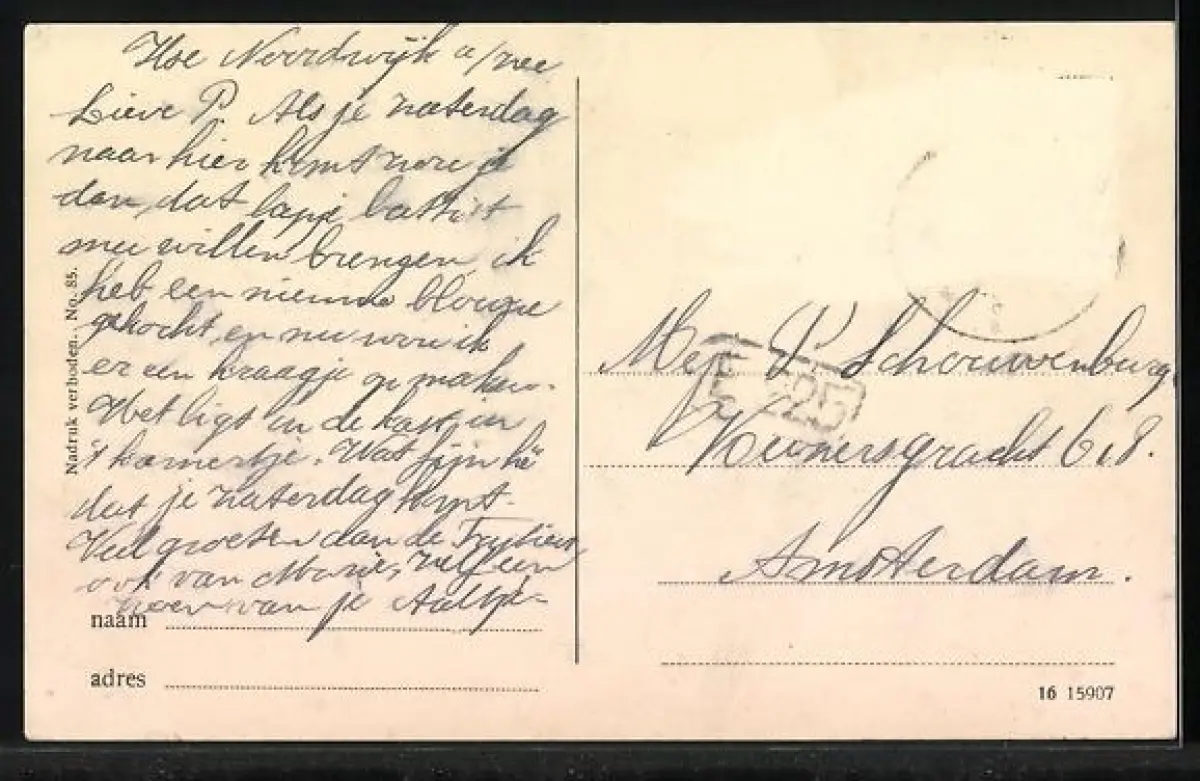 Hse Noordwijk a/zee
Lieve P. Als je zaterdag
naar hier komt zou je
dan dat lapje battist
mee willen brengen, ik
heb een nieuwe blouse
gekocht, en nu wou ik
er een kraagje op maken.
Het ligt in de kast in
't kamertje. Wat fijn hè
dat je zaterdag komt.
Veel groeten aan de
ook van Marie, zelf een
zoen van je Aaltje
naam
adres
Nadruk verboden. No. 85.
Mej P. Schouwenburg
E 225
Keizersgracht 618.
Amsterdam.
16 15907